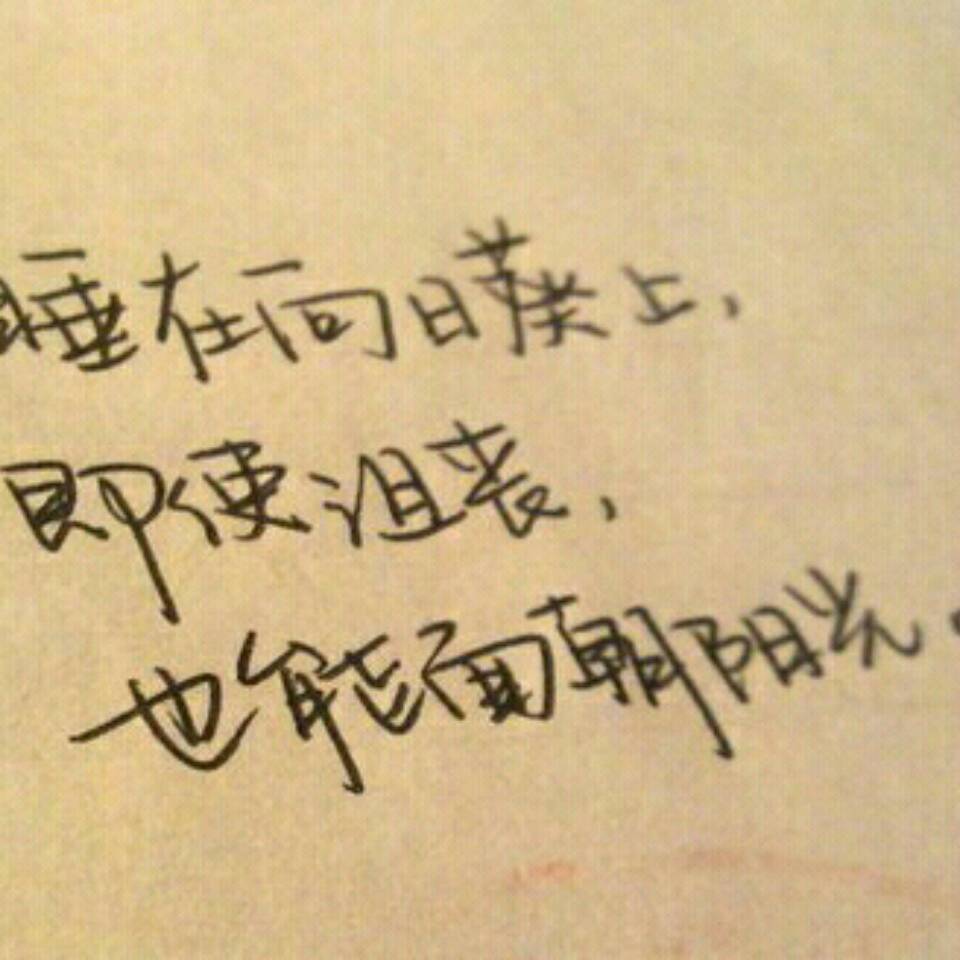 睡在向日葵上，
即便沮丧，
也能面朝阳光。